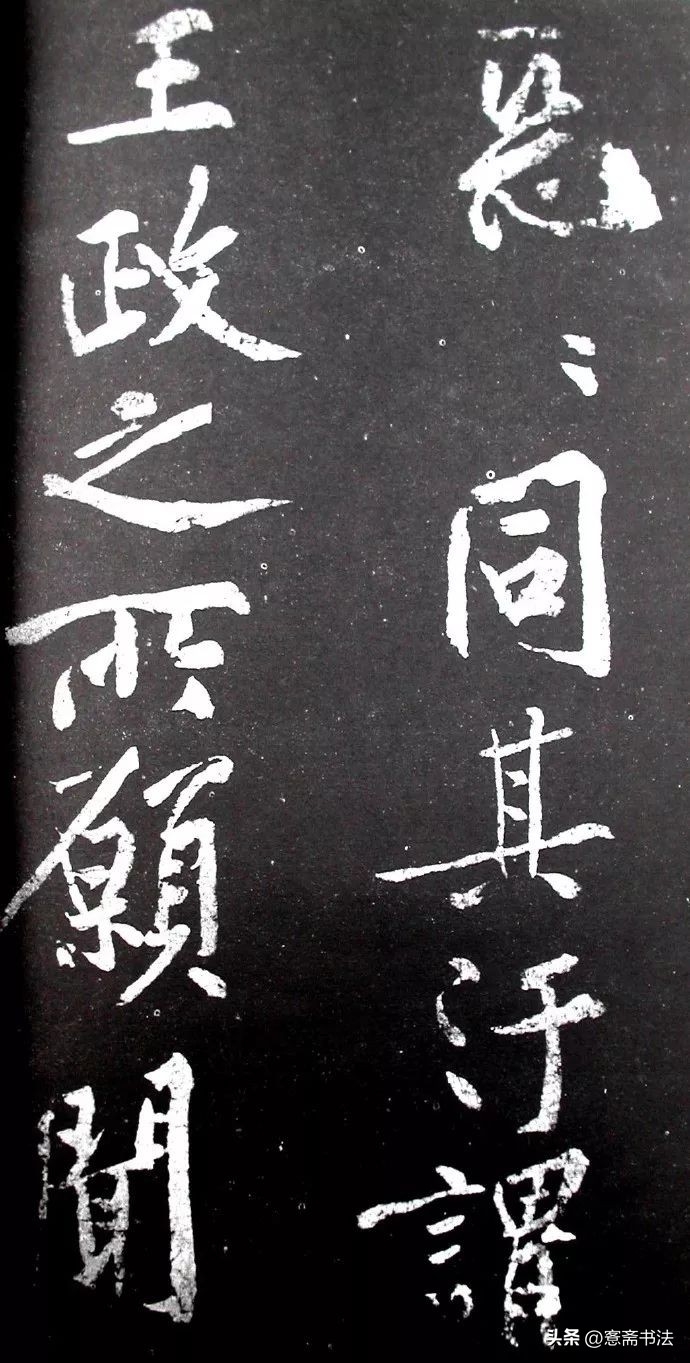 惡〻同其汙謂
王政之所願聞
头条 @愙斋书法